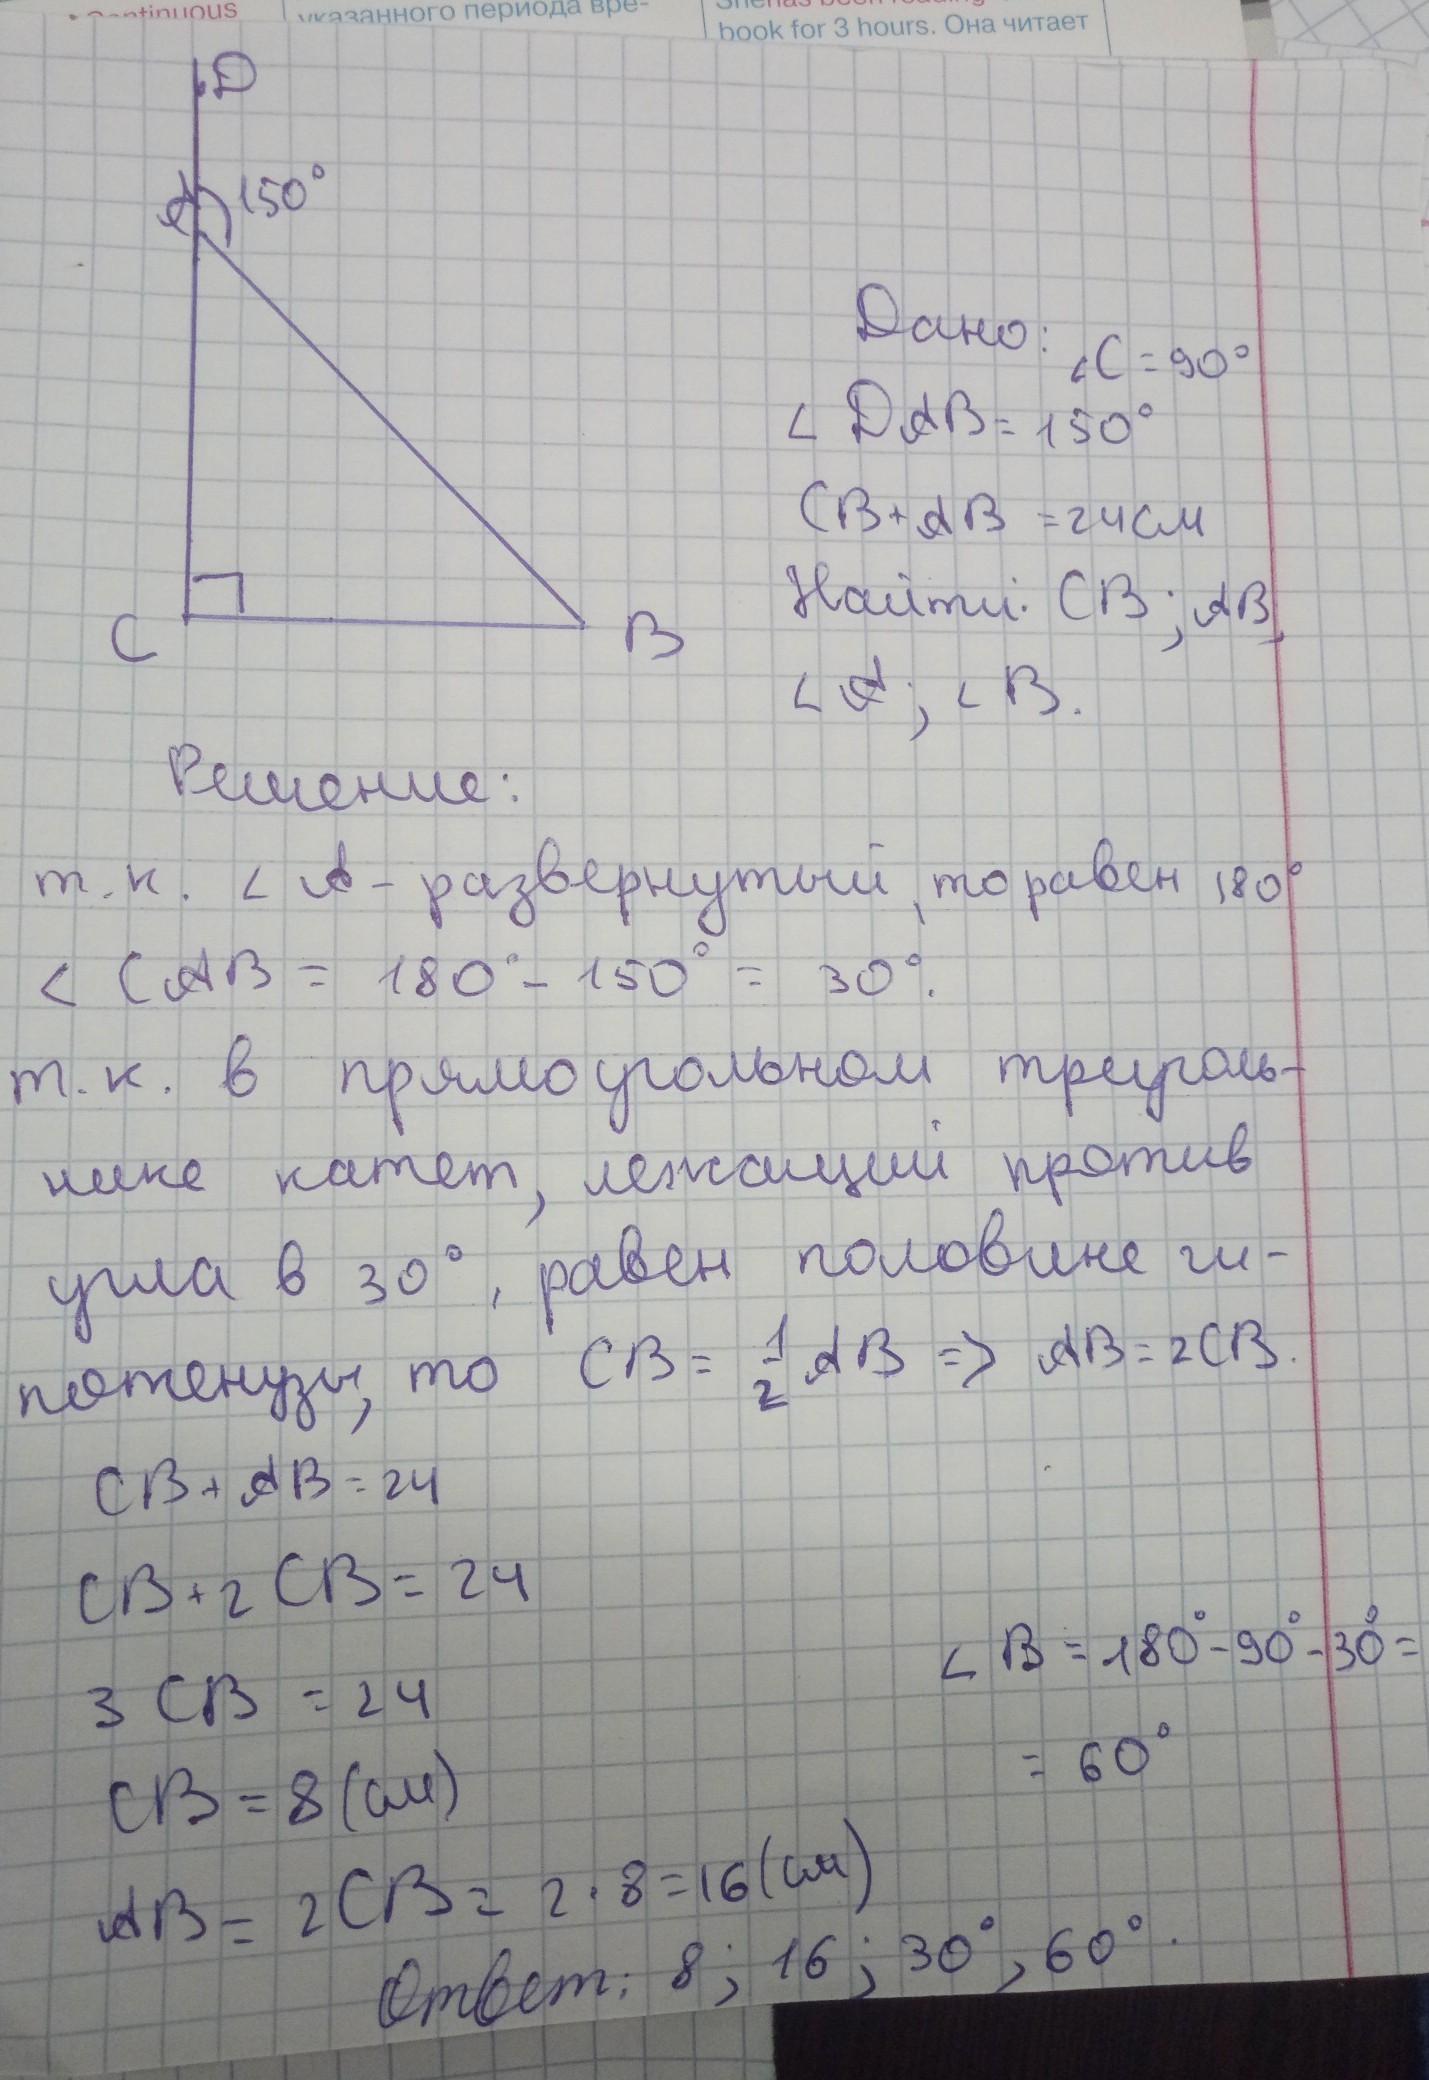 Continuous
указанного периода вре-
She has been reading
book for 3 hours. Она читает
D
A 150°
C
B
Дано: ∠C = 90°
∠DAB = 150°
CB + AB = 24 см
Найти: CB; AB,
∠A; ∠B.
Решение:
т.к. ∠A - развернутый, то равен 180°
∠CAB = 180° - 150° = 30°.
т.к. в прямоугольном треуголь-
нике катет, лежащий против
угла в 30°, равен половине ги-
потенузы, то CB = 1/2 AB => AB = 2CB.
CB + AB = 24
CB + 2CB = 24
3 CB = 24
CB = 8 (см)
AB = 2CB = 2 · 8 = 16 (см)
∠B = 180° - 90° - 30° =
= 60°
Ответ: 8; 16; 30°, 60°.